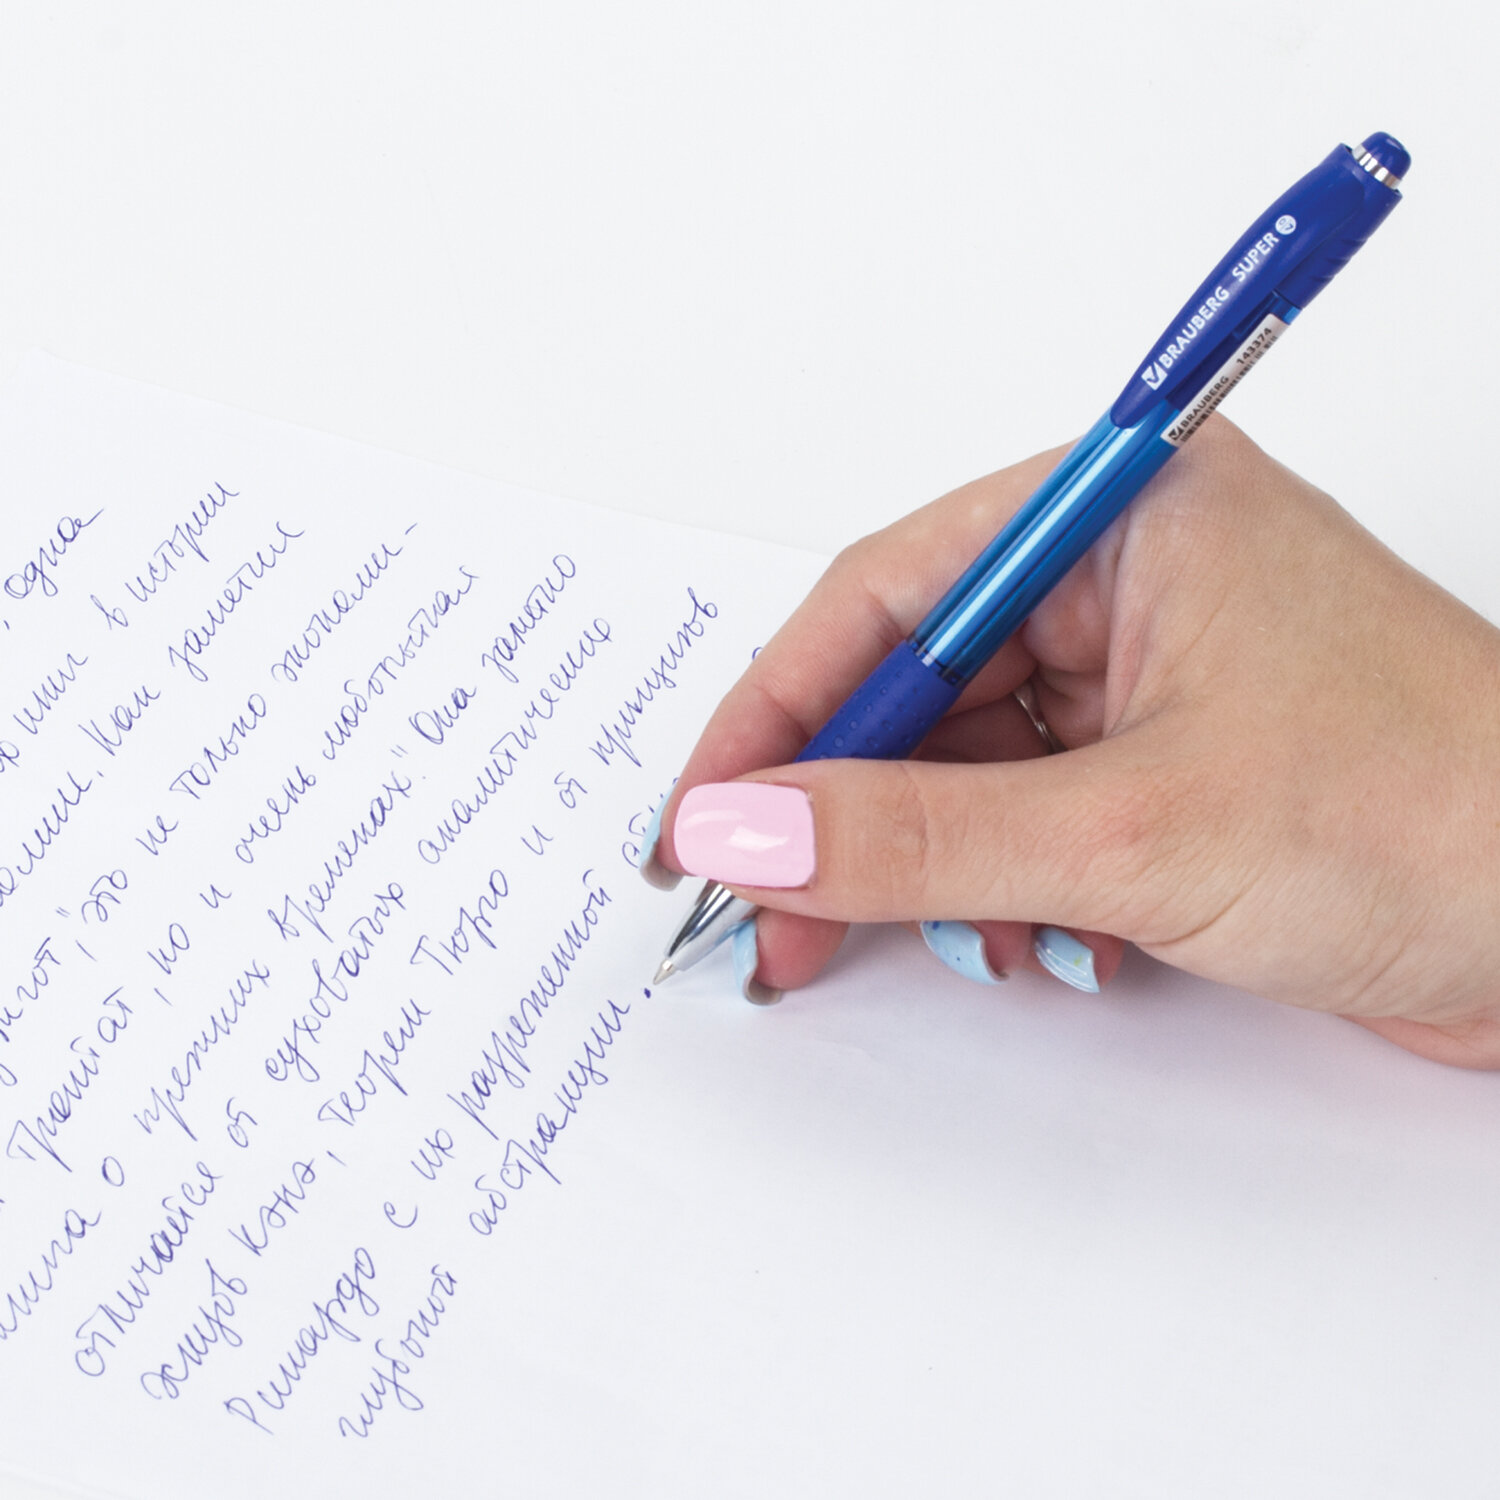 Одна
книг в истории
Как заметил
", это не только экономи-
Трактат, но и очень любопытная
книга о прежних временах". Она заметно
отличается от суховатых аналитических
эскизов Кэнэ, теорем Тюрго и от принципов
Рикардо с их разреженной
глубокой абстракции.
BRAUBERG SUPER
BRAUBERG 143374